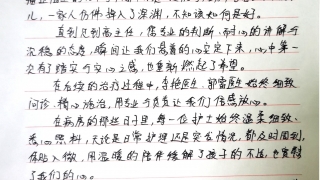 儿，一家人仿佛掉入了深渊，不知该如何是好。
直到见到高主任，他专业的判断、耐心的讲解与
沉稳的态度，瞬间让我们慌着的心安定下来，心中第一
次有了踏实与安心之感，也重新燃起了希望。
在后续的治疗过程中，医师始终细致
问诊、精心施治，用专业与负责让我们倍感放心。
在病房的那些日子里，每一位护士始终温柔细致、
悉心照料，无论是日常护理还是突发情况，都及时周到、
体贴入微，用温暖的陪伴缓解了孩子的不适，也宽慰
了我们的心。